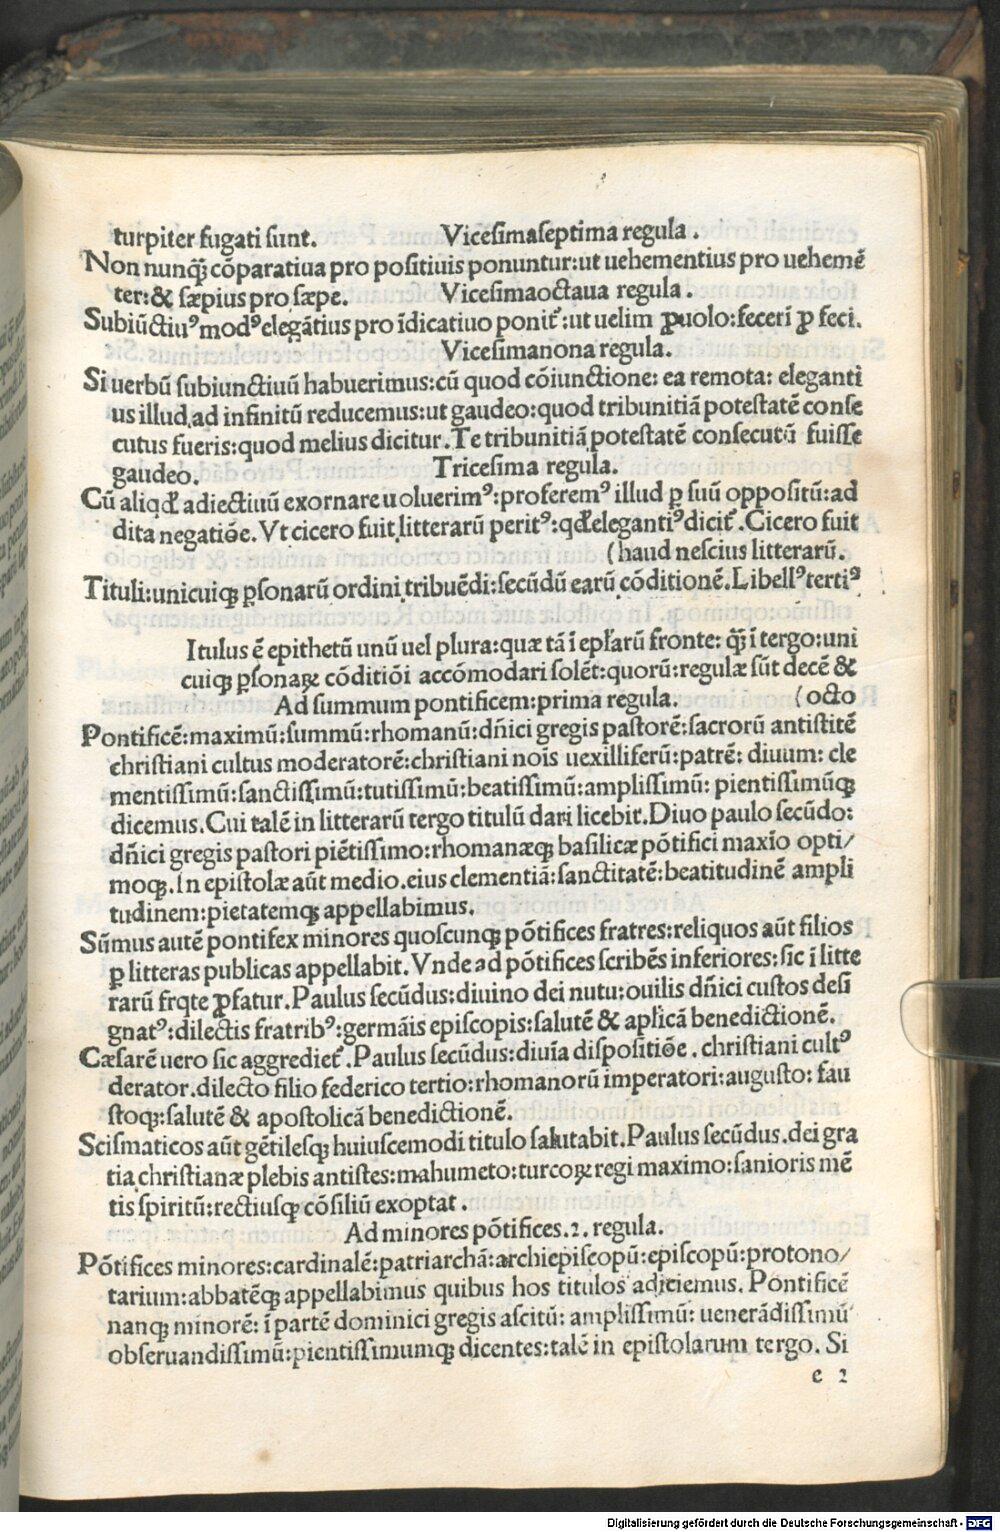 turpiter fugati sunt. Vicesimaseptima regula.
Non nunq̃ꝫ cõparatiua pro positiuis ponuntur:ut uehementius pro uehemẽ
ter:& sæpius pro sæpe. Vicesimaoctaua regula.
Subiũctiuꝰ modꝰ elegãtius pro ĩdicatiuo ponit᷑:ut uelim ꝓ uolo:fecerĩ ꝓ feci.
Vicesimanona regula.
Si uerbũ subiunctiuũ habuerimus:cũ quod cõiunctione: ea remota: eleganti
us illud,ad infinitũ reducemus:ut gaudeo:quod tribunitiã potestatẽ conse
cutus fueris:quod melius dicitur. Te tribunitiã potestatẽ consecutũ fuisse
gaudeo. Tricesima regula.
Cũ aliqđ adiectiuũ exornare uoluerimꝰ:proferemꝰ illud ꝑ suũ oppositũ:ad
dita negatiõe. Vt cicero fuit litterarũ peritꝰ:qđ elegantiꝰ dicit᷑. Cicero fuit
(haud nescius litterarũ.
Tituli:unicuiqꝫ ꝑsonarũ ordini tribuẽdi:secũdũ earũ cõditionẽ. Libellꝰ tertiꝰ
Itulus ẽ epithetũ unũ uel plura:quæ tã ĩ epl̃arũ fronte: q̃ꝫ ĩ tergo:uni
cuiqꝫ ꝑsonaꝝ cõditiõi accõmodari solẽt:quorũ:regulæ sũt decẽ &
Ad summum pontificem:prima regula. (octo
Pontificẽ:maximũ:summũ:rhomanũ:dñici gregis pastorẽ:sacrorũ antistitẽ
christiani cultus moderatorẽ:christiani nois uexilliferũ:patrẽ: diuum: cle
mentissimũ:sanctissimũ:tutissimũ:beatissimũ:amplissimũ: pientissimũqꝫ
dicemus. Cui talẽ in litterarũ tergo titulũ dari licebit. Diuo paulo secũdo:
dñici gregis pastori piẽtissimo:rhomanæqꝫ basilicæ põtifici maxĩo opti/
moqꝫ. In epistolæ aũt medio.eius clementiã:sanctitatẽ:beatitudinẽ ampli
tudinem:pietatemqꝫ appellabimus.
Sũmus autẽ pontifex minores quoscunqꝫ põtifices fratres:reliquos aũt filios
ꝑ litteras publicas appellabit. Vnde ad põtifices scribẽs inferiores:sic ĩ litte
rarũ frõte ꝓfatur. Paulus secũdus:diuino dei nutu:ouilis dñici custos desi
gnatꝰ:dilectis fratribꝰ:germãis episcopis:salutẽ & aplicã benedictionẽ.
Cæsarẽ uero sic aggrediet᷑. Paulus secũdus:diuĩa dispositiõe. christiani cultꝰ
derator.dilecto filio federico tertio:rhomanorũ imperatori:augusto: fau
stoqꝫ:salutẽ & apostolicã benedictionẽ.
Scismaticos aũt gẽtilesqꝫ huiuscemodi titulo salutabit. Paulus secũdus.dei gra
tia,christianæ plebis antistes:mahumeto:turcoꝝ regi maximo:sanioris mẽ
tis spiritũ:rectiusqꝫ cõsiliũ exoptat.
Ad minores põtifices.2. regula.
Põtifices minores:cardinalẽ:patriarchã:archiepiscopũ:episcopũ:protono/
tarium:abbatẽqꝫ appellabimus quibus hos titulos adiciemus. Pontificẽ
nanqꝫ minorẽ: ĩ partẽ dominici gregis ascitũ: amplissimũ: uenerãdissimũ
obseruandissimũ:pientissimumqꝫ dicentes:talẽ in epistolarum tergo. Si
c 2
Digitalisierung gefördert durch die Deutsche Forschungsgemeinschaft - DFG